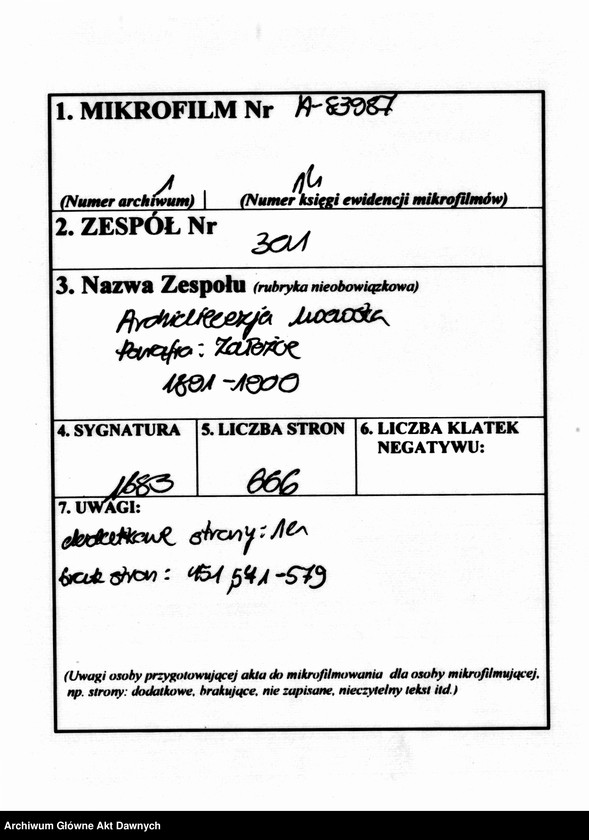 1. MIKROFILM Nr A-83987
1 14
(Numer archiwum) (Numer księgi ewidencji mikrofilmów)
2. ZESPÓŁ Nr
301
3. Nazwa Zespołu (rubryka nieobowiązkowa)
Archidiecezja lwowska
Parafia: Załoźce
1891-1900
4. SYGNATURA 5. LICZBA STRON 6. LICZBA KLATEK
NEGATYWU:
1683 666
7. UWAGI:
dodatkowe strony:
brak stron: 451, 541-579
(Uwagi osoby przygotowującej akta do mikrofilmowania dla osoby mikrofilmującej,
np. strony: dodatkowe, brakujące, nie zapisane, nieczytelny tekst itd.)
Archiwum Główne Akt Dawnych